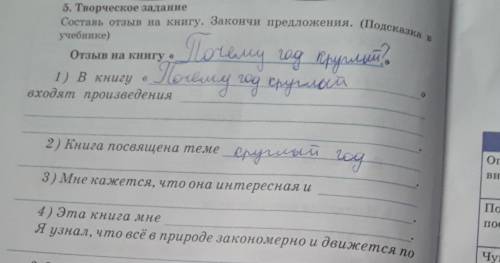 5. Творческое задание
Составь отзыв на книгу. Закончи предложения. (Подсказка в
учебнике)
Отзыв на книгу « Почему год круглый? »
1) В книгу « Почему год круглый »
входят произведения
.
2) Книга посвящена теме круглый год
.
3) Мне кажется, что она интересная и
.
4) Эта книга мне .
Я узнал, что всё в природе закономерно и движется по
Оп
ви
По
по
Чу